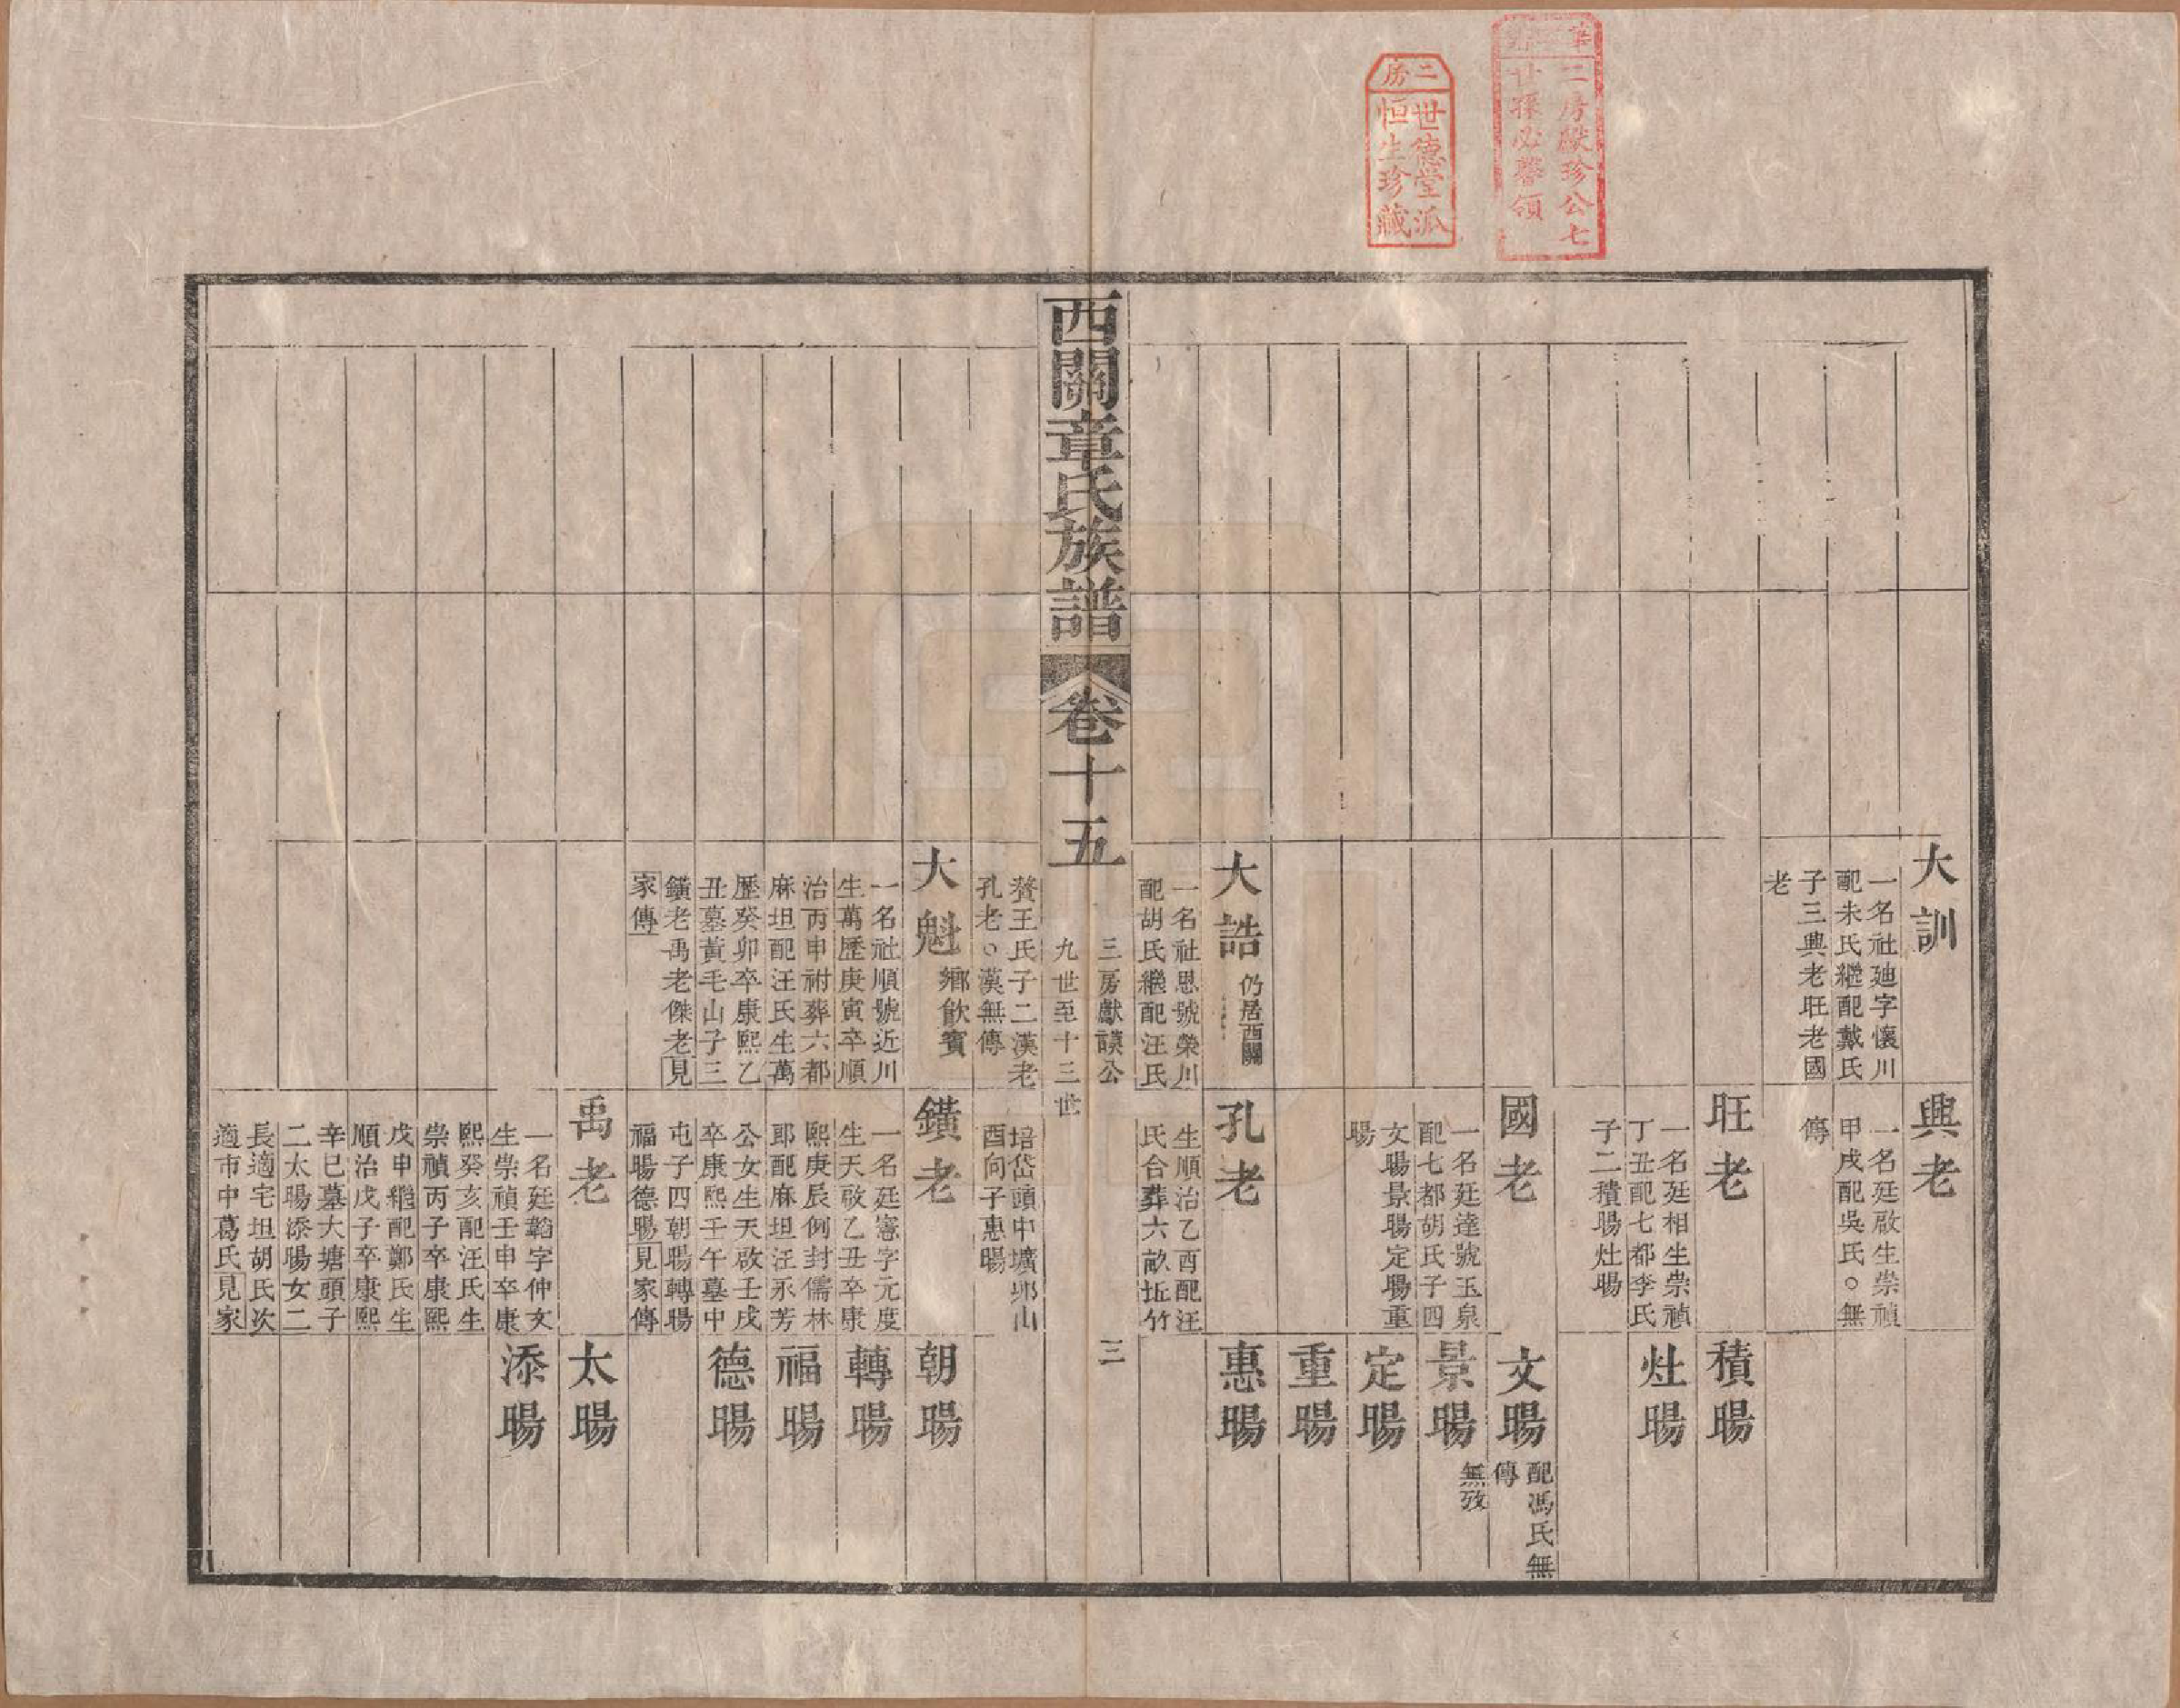 二房獻珍公七
廿孫必馨領
二房
世德堂派
恒生珍藏
大訓
一名社廸字懷川
配朱氏繼配戴氏
子三興老旺老國
老
興老
一名廷啟生崇禎
甲戌配吳氏○無
傳
旺老
一名廷相生崇禎
丁丑配七都李氏
子二積暘灶暘
積暘
灶暘
國老
一名廷達號玉泉
配七都胡氏子四
文暘景暘定暘重
暘
文暘
配馮氏無
傳
景暘
無攷
定暘
重暘
大誥
仍居西關
一名社恩號榮川
配胡氏繼配汪氏
孔老
生順治乙酉配汪
氏合葬六畝坵竹
惠暘
西關章氏族譜
卷十五
三房獻謨公
九世至十三世
三
贅王氏子二漢老
孔老○漢無傳
培岱頭中壙邜山
酉向子惠暘
大魁
鄉飲賓
一名社順號近川
生萬歷庚寅卒順
治丙申祔葬六都
麻坦配汪氏生萬
歷癸卯卒康熙乙
丑墓黃毛山子三
鐄老禹老傑老見
家傳
鐄老
一名廷憲字元度
生天啟乙丑卒康
熙庚辰例封儒林
郎配麻坦汪永芳
公女生天啟壬戌
卒康熙壬午墓中
屯子四朝暘轉暘
福暘德暘見家傳
朝暘
轉暘
福暘
德暘
禹老
一名廷韜字仲文
生崇禎壬申卒康
熙癸亥配汪氏生
崇禎丙子卒康熙
戊申繼配鄭氏生
順治戊子卒康熙
辛巳墓大塘頭子
二太暘添暘女二
長適宅坦胡氏次
適市中葛氏見家
太暘
添暘